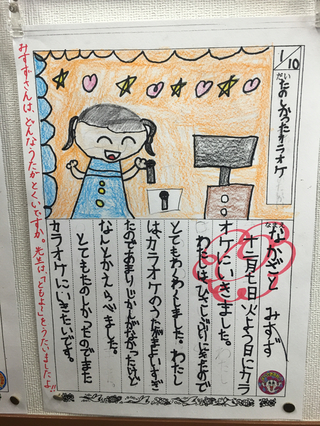 1/10
だい
たのしかったカラオケ
ながさと みすず
十二月七日火よう日にカラ
オケにいきました。
わたしはひさしぶりにきたので
とてもわくわくしました。わたし
はカラオケのうたがおおいすぎ
たのであまりじかんがなかったけど
なんとかえらべました。
とてもたのしかったのでまた
カラオケにいきたいです。
みすずさんは、どんなうたがとくいですか。先生は、「ともよ!」をうたいましたよ!!!